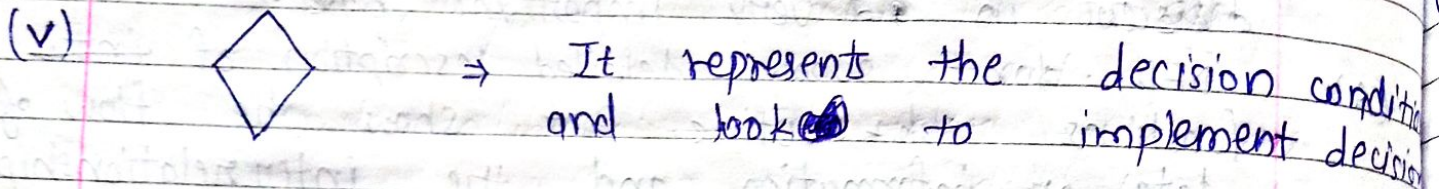 (v) ⇒ It represents the decision conditi
and look to implement decision